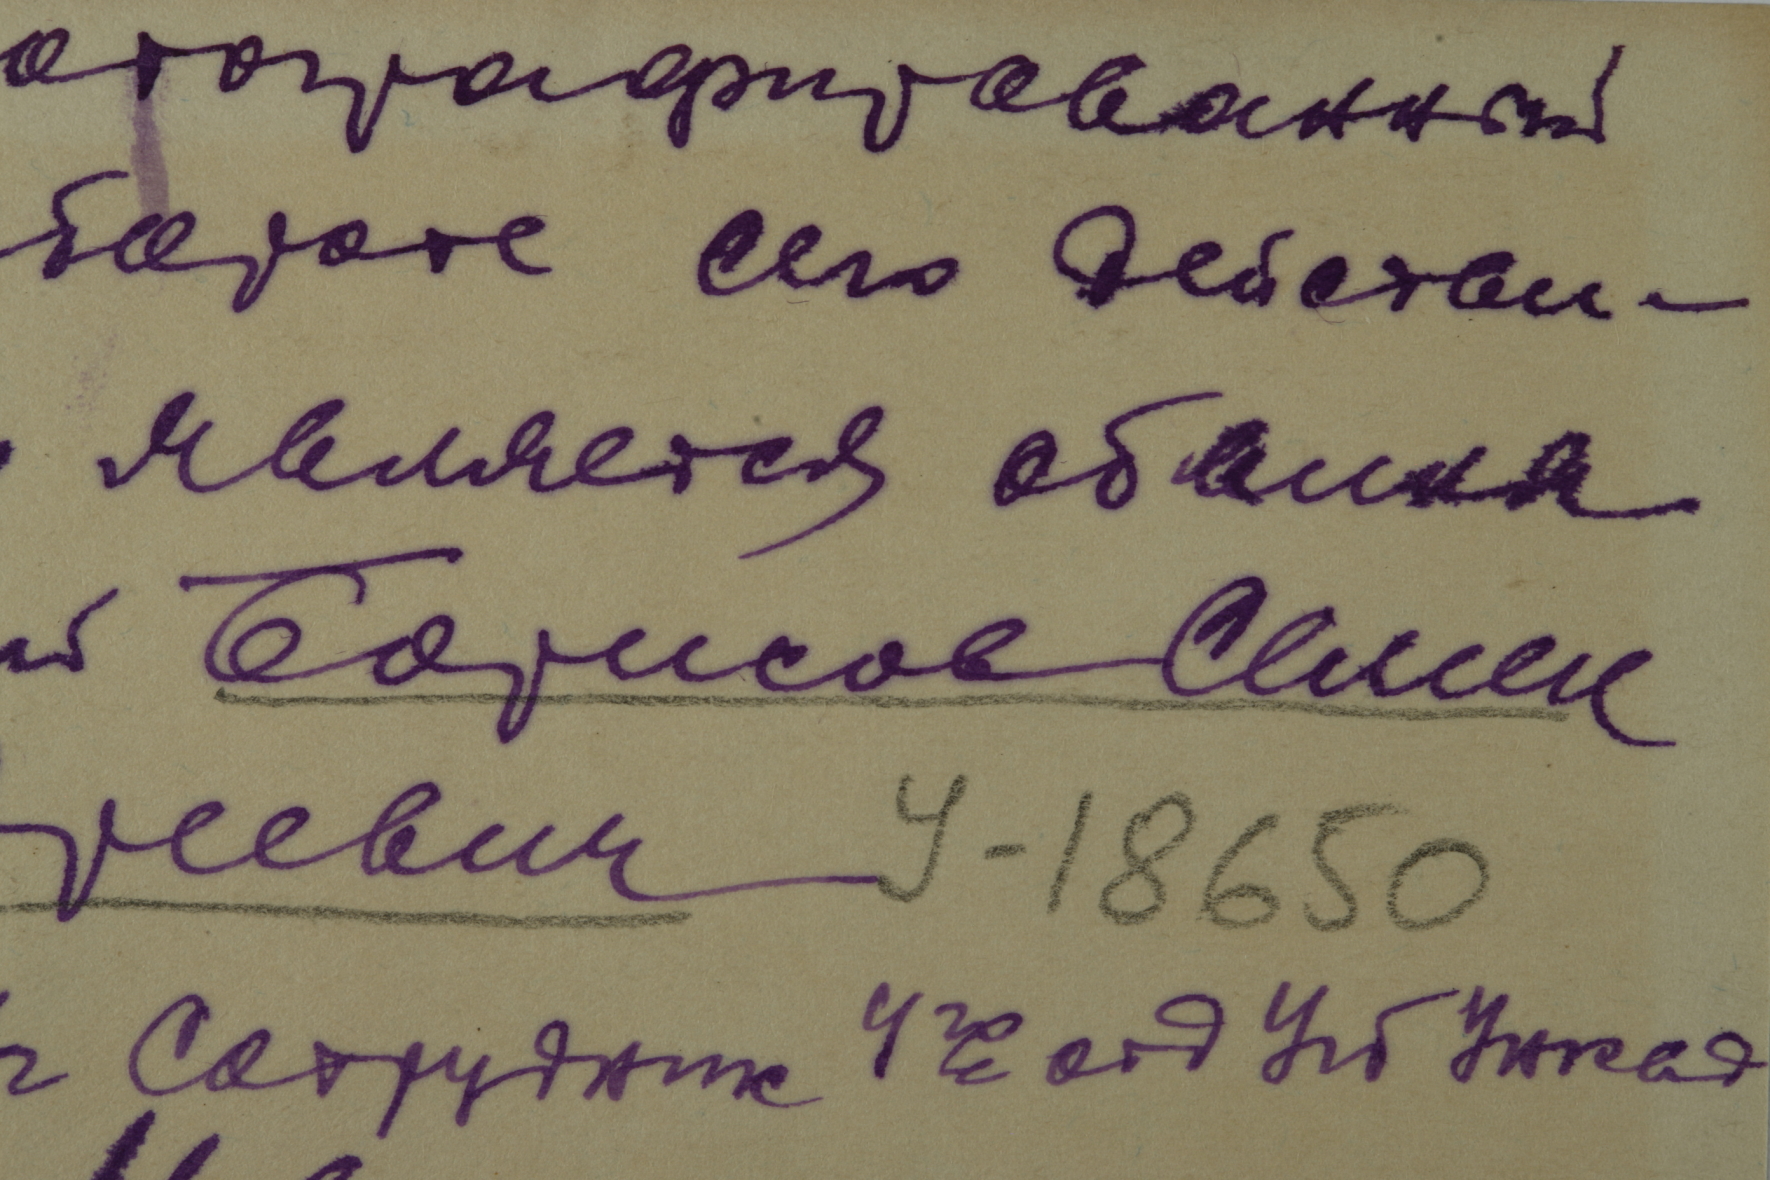 отографированный
обороте сего действи-
является обвиня
ий Борисов Семен
реевич У-18650
Сотрудник 4го отд УГБ УНКВД